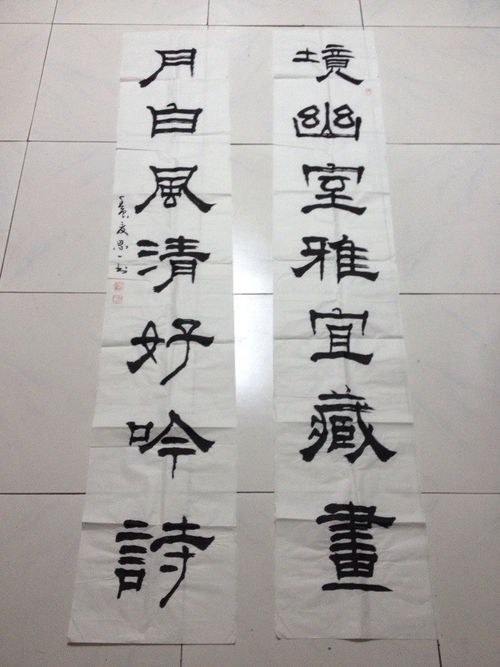 境幽室雅宜藏畫
月白風清好吟詩